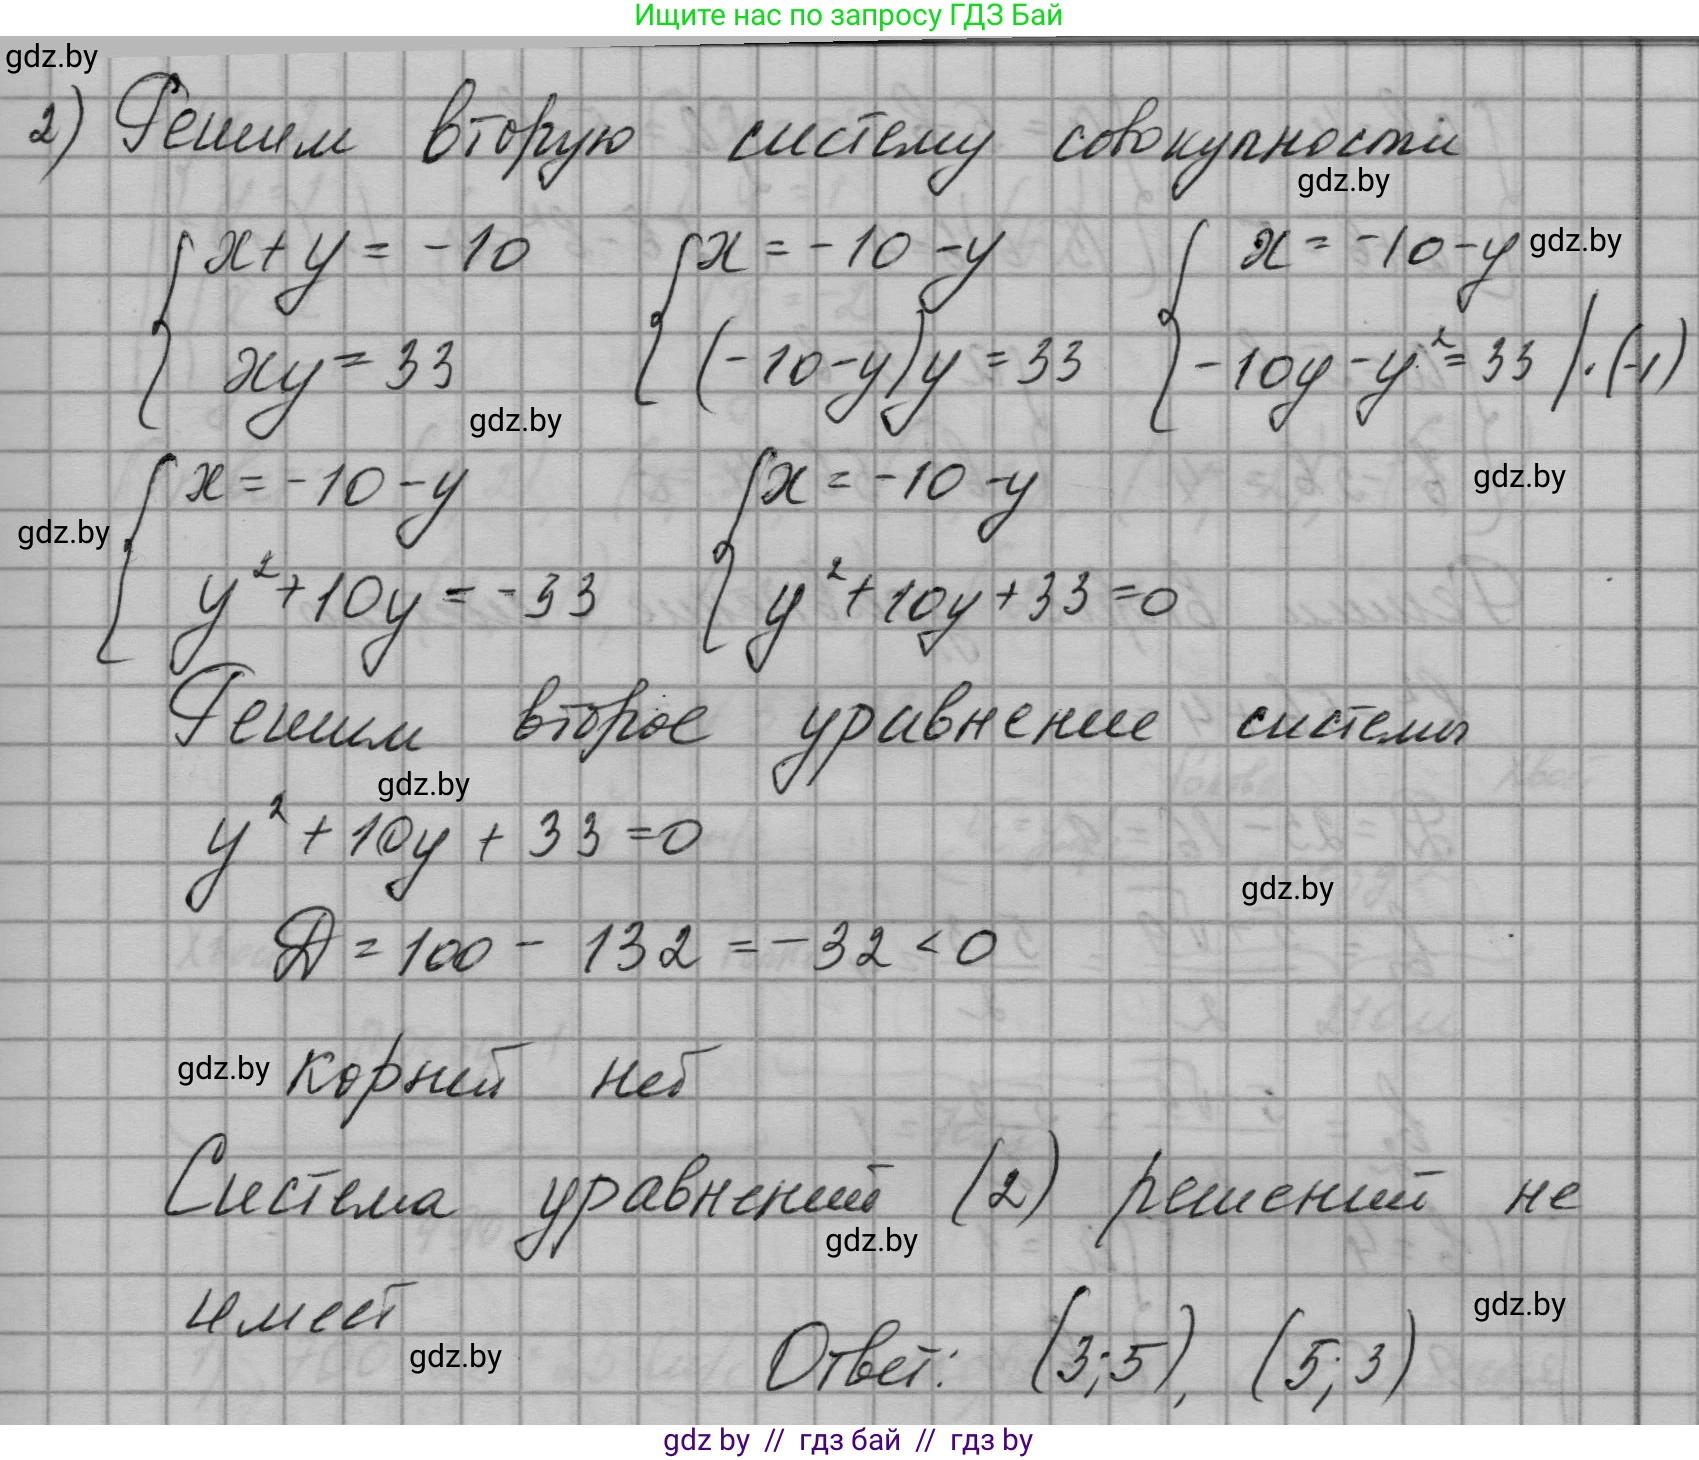 Ищите нас по запросу ГДЗ Бай
gdz.by
2) Решим вторую систему совокупности
gdz.by
{ x + y = -10 { x = -10 - y { x = -10 - y gdz.by
{ xy = 33 { (-10 - y)y = 33 { -10y - y² = 33 | · (-1)
gdz.by
{ x = -10 - y { x = -10 - y gdz.by
gdz.by
{ y² + 10y = -33 { y² + 10y + 33 = 0
Решим второе уравнение системы
gdz.by
y² + 10y + 33 = 0
gdz.by
Д = 100 - 132 = -32 < 0
gdz.by корней нет
Система уравнений (2) решений не
gdz.by
имеет
gdz.by
Ответ: (3; 5), (5; 3)
gdz.by
gdz by // гдз бай // гдз by